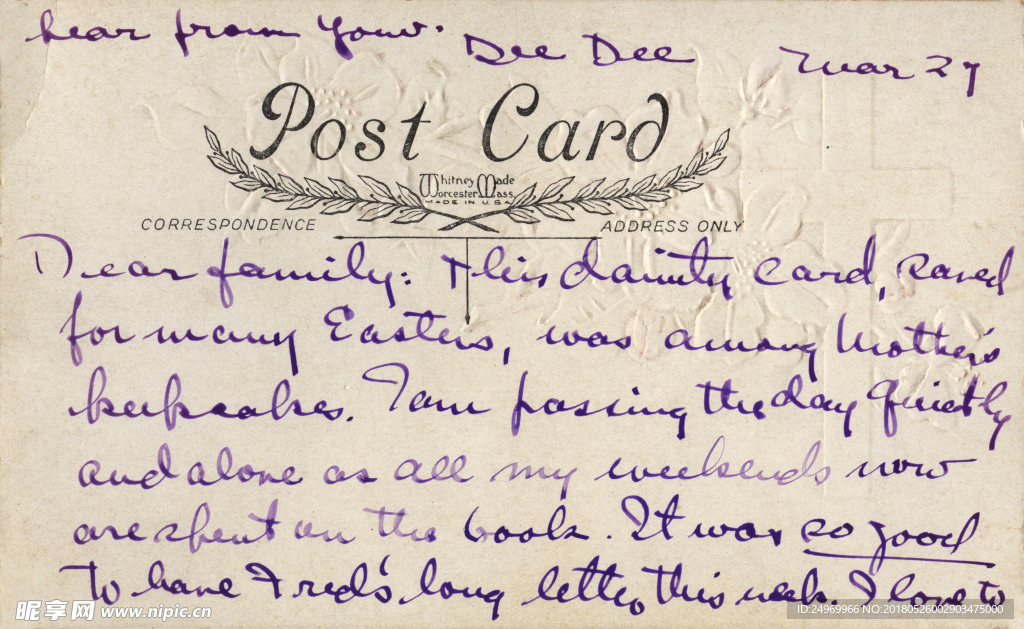 hear from you.
Dee Dee
Mar 27
Post Card
Whitney Made
Worcester Mass.
MADE IN U.S.A.
CORRESPONDENCE
ADDRESS ONLY
Dear family: This dainty card, saved
for many Easters, was among Mother's
keepsakes. I am passing the day quietly
and alone as all my weekends now
are spent on the book. It was so good
to have Fred's long letter this week. I love to
昵享网 www.nipic.cn
ID:24969966 NO:20180526002903475000